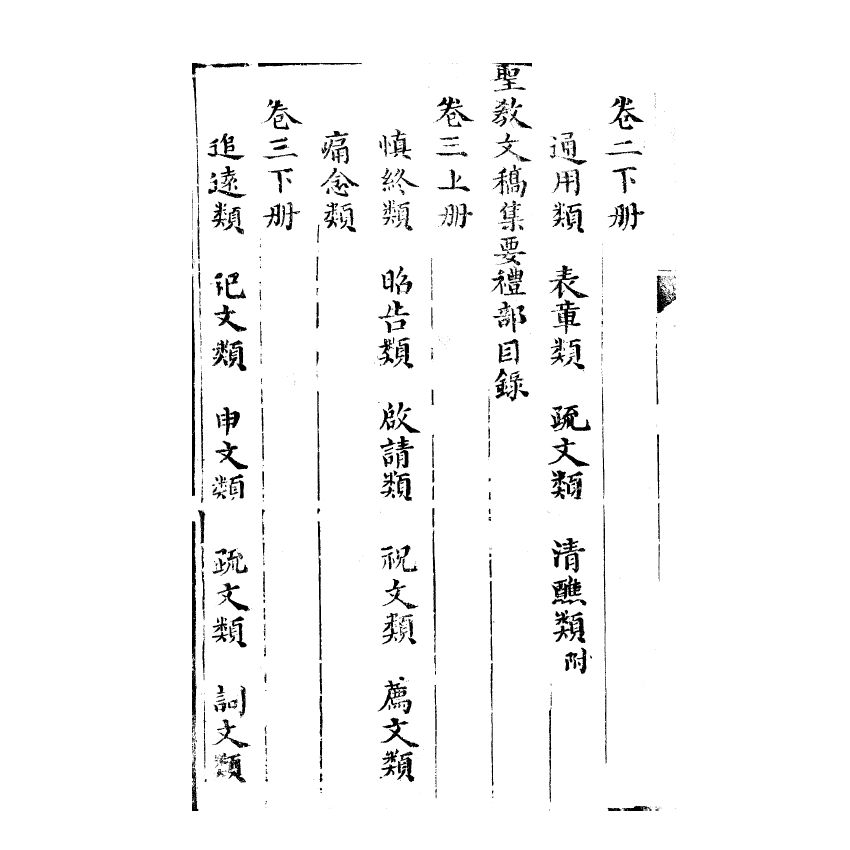 卷二下册
通用類 表章類 疏文類 清醮類附
聖教文稿集要禮部目錄
卷三上册
慎終類 昭告類 啟請類 祝文類 薦文類
痛念類
卷三下册
追遠類 祀文類 申文類 疏文類 詞文類